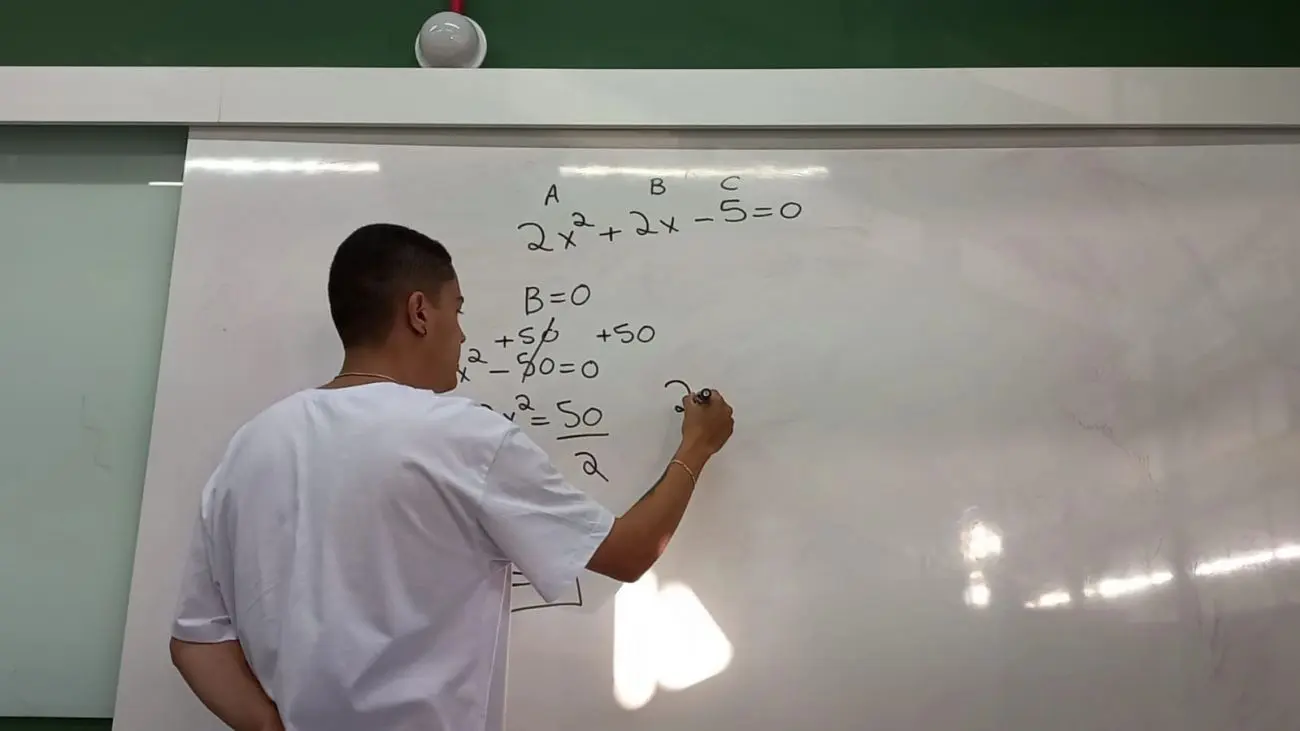 A B C
2x² + 2x - 5 = 0
B = 0
+50 +50
x² - 50 = 0
x² = 50
2
2